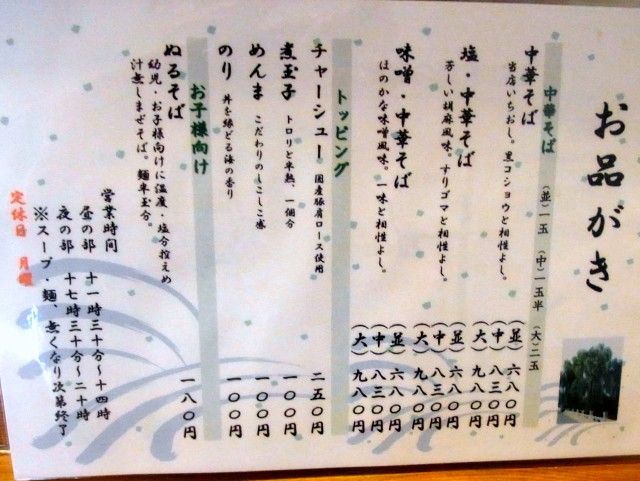 お品がき
中華そば （並）一玉 （中）一玉半 （大）二玉
中華そば
当店いちおし。黒コショウと相性よし。
（並）六八〇円
（中）八三〇円
（大）九八〇円
塩・中華そば
芳しい胡麻風味。すりゴマと相性よし。
（並）六八〇円
（中）八三〇円
（大）九八〇円
味噌・中華そば
ほのかな味噌風味。一味と相性よし。
（並）六八〇円
（中）八三〇円
（大）九八〇円
トッピング
チャーシュー 国産豚肩ロース使用 二五〇円
煮玉子 トロリと半熟、一個分 一〇〇円
めんま こだわりのしこしこ感 一〇〇円
のり 丼を縁どる海の香り 一〇〇円
お子様向け
ぬるそば 一八〇円
幼児・お子様向けに温度・塩分控えめ
汁無しまぜそば。麺半玉分。
営業時間
昼の部 十一時三十分〜十四時
夜の部 十七時三十分〜二十時
※スープ・麺、無くなり次第終了
定休日 月曜